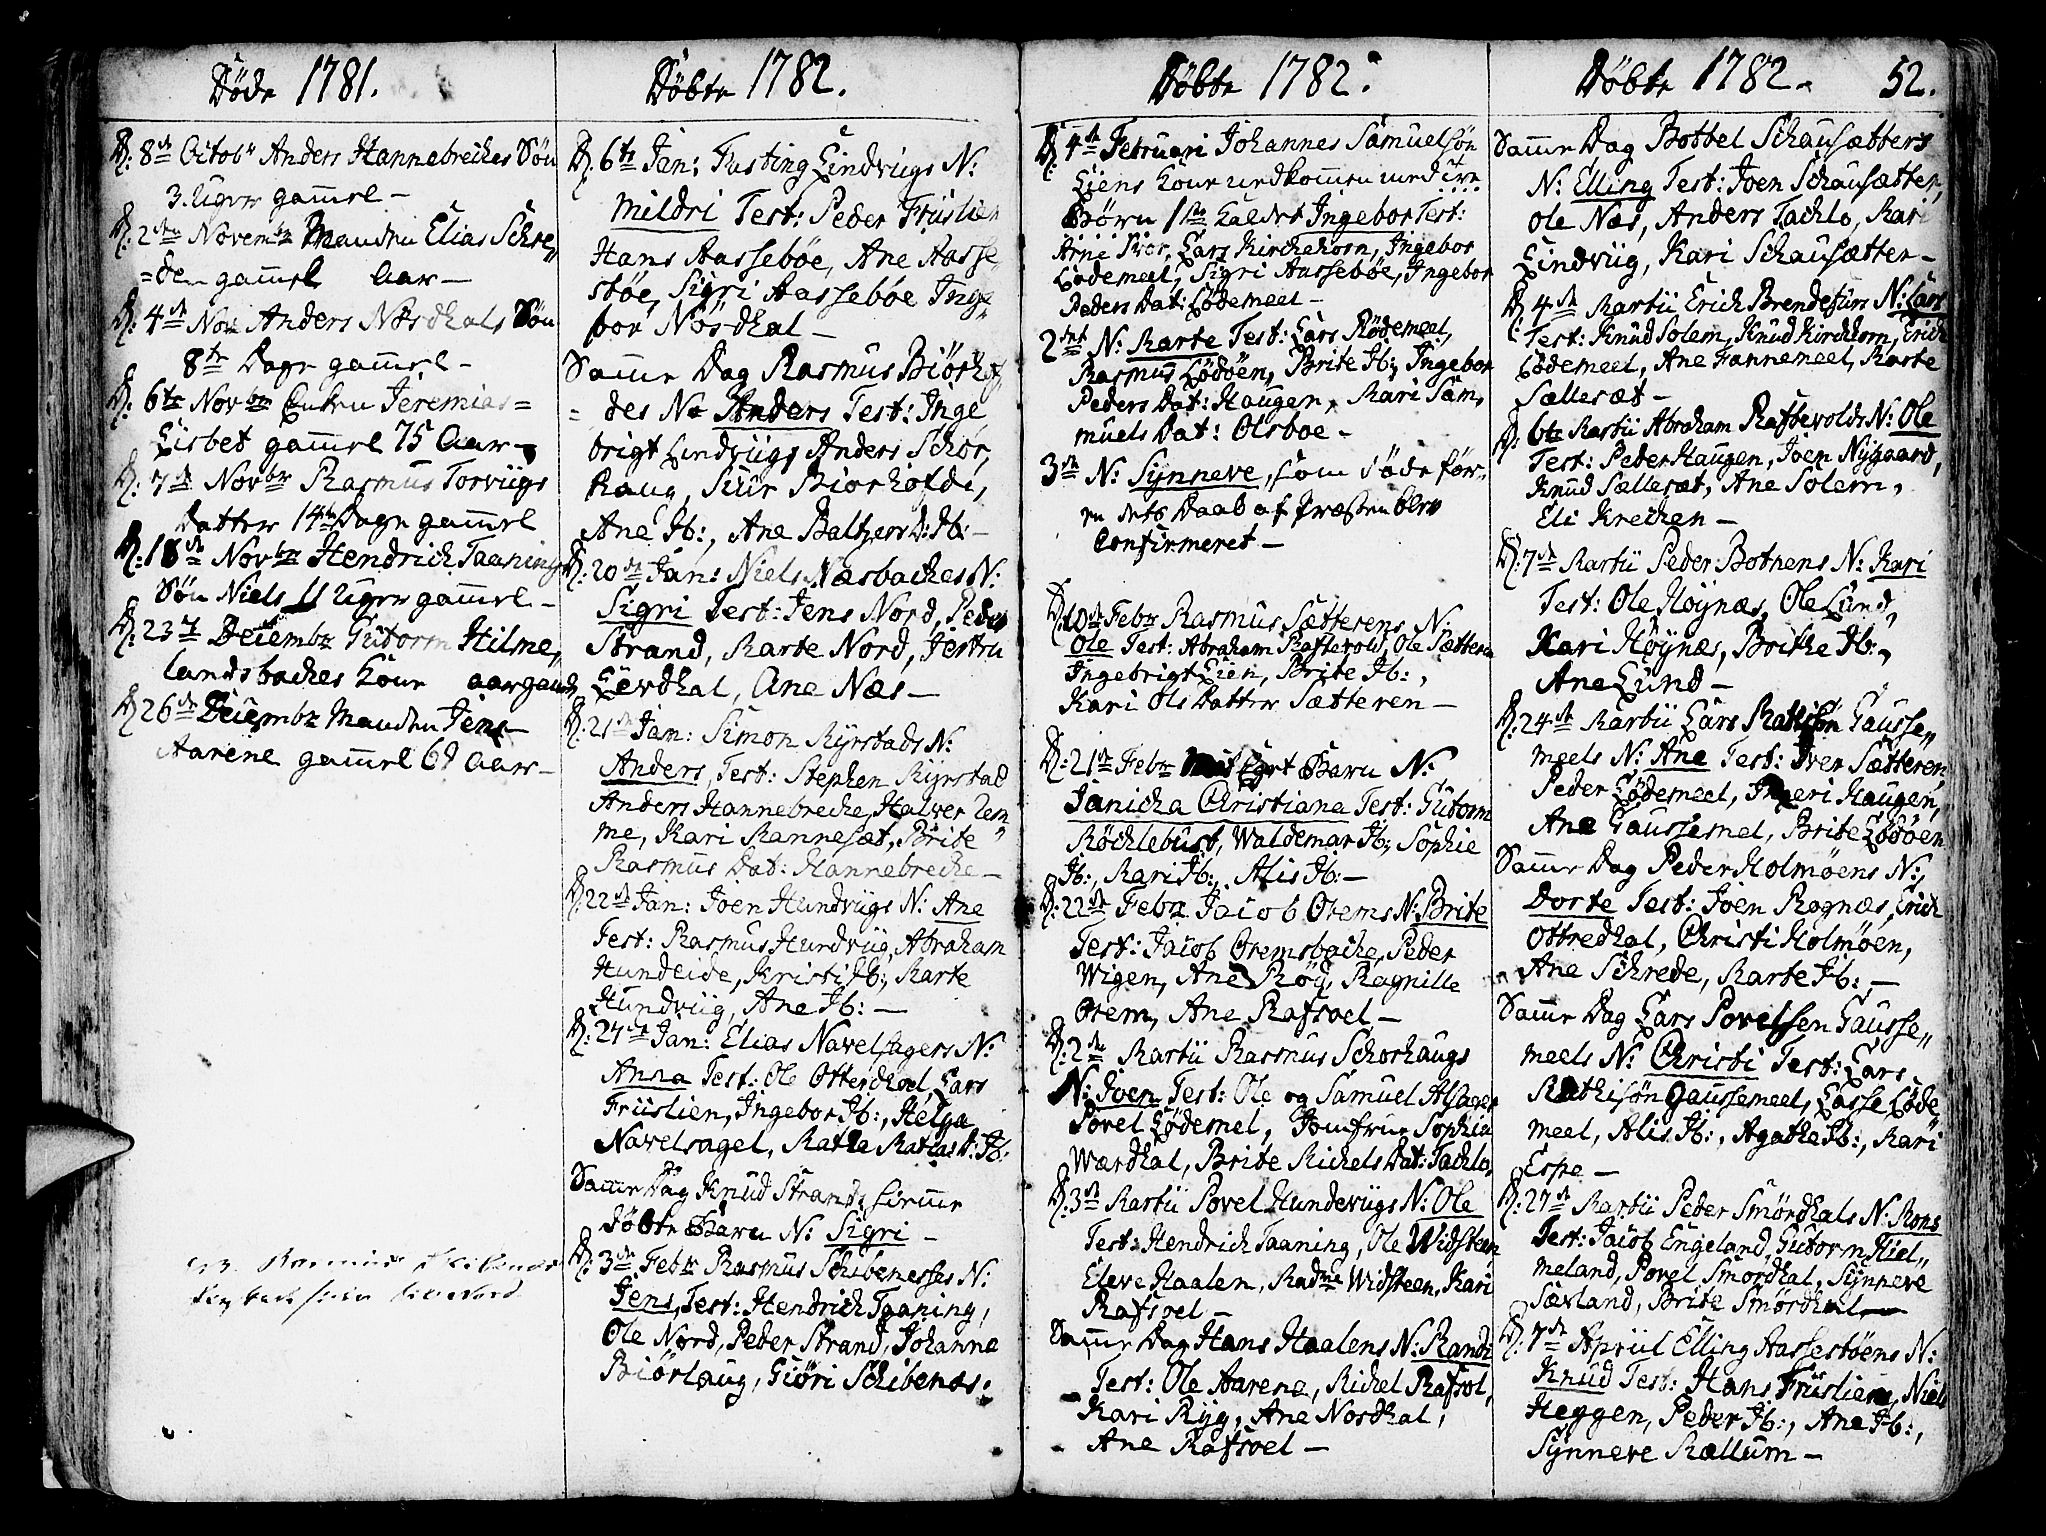 Döde 1781.
D: 8de Octobr Anders Hannebreches Sön
3. Uger gaml –
D: 2den Novembr Manden Elias Schre„
=de gaml Aar –
D: 4de Nov Anders Nosdhals Sön
8te Dage gaml –
D: 6te Novbr Enken Jeremias=
Lisbet gaml 75 Aar –
D: 7de Novbr Rasmus Torviigs
Datter 14ten Dage gaml
D: 18de Novbr Hendrich Taanings
Sön Niels 11 Uger gaml –
D: 23de Decembr Gutorm Hilme„
landsbaches Kone aargaml
D: 26de Decembr Manden Jens
Aarene gaml 69 Aar –
Rasmus
Döbte 1782.
D: 6te Jan: Fusting Lindviigs N:
Mildri Test: Peder Früslien
Hans Aassebøe, Ane Aasse
støe, Sigri Aassebøe Inge
bor Nösdhal –
Samme Dag Rasmus Biörhof
= des N: Anders Test: Inge
brigt Lindviig, Anders Schor,
haug, Siür Biorhofdi,
Ane Ib:, Ane Baltzers D: Ib: –
D: 20de Jan: Niels Næsbaches N:
Sigri Test: Jens Nord, Peder
Strand, Marte Nord, Jertru
Leerdhal, Ane Næs –
D: 21de Jan: Simon Myrstads N:
Anders Test: Stephen Myrstad
Anders Hannebreche, Halver Tem
me, Kari Mannesæt, Brite
Rasmus Dat: Hannebreche –
D: 22de Jan: Joen Hundviigs N: Ane
Test: Rasmus Hundviig, Abraham
Hundeide, Kristi Ib:, Marte
Hundviig, Ane Ib: –
D: 27de Jan: Elias Navelsagers N:
Anna Test: Ole Otterdhal, Lars
Früslien, Ingebor Ib:, Helga
Navelsaget, Mathe Matias D: Ib:
Samme Dag Knud Strands hieme
döbte Barn N: Sigri –
D: 3de Febr Rasmus Schibenesses N:
Jens, Test: Hendrich Taaning,
Ole Nord, Peder Strand, Johanna
Biörlaug, Giöri Schibenæs.
Döbte 1782.
D: 4de Februari Johannes Samuelsön
Liens Kone nedkommen med tre
Börn 1ste kaldet Ingebor Test:
Arne Svor, Lars Kirchehorn, Ingebor
Lødemeel, Sigri Aassebøe, Ingebor
Peders Dat: Lødemeel –
2det N: Marte Test: Lars Lödemeel,
Rasmus Lödöen, Brite Ib:, Ingebor
Peders Dat: Haugen, Mari Sam„
muels Dat: Olsboe –
3de N: Synneve, som döde för„
en dets Daab af Præsten blev
Confirmeret –
D: 10de Febr Rasmus Sætterens N:
Ole Test: Abraham Raftevold, Ole Sætteren
Ingebrigt Lien, Brite Ib:,
Kari Ols Datter Sætteren –
D: 21de Febr Barn N:
Janicha Christiana Test: Gutorm
Röchlebust, Waldemar Ib:, Sophie
Ib:, Mari Ib:, Alis Ib: –
D: 22de Febr Jacob Orems N: Brite
Test: Jacob Oremsbache, Peder
Wigen, Ane Röy, Ragnille
Orem, Ane Rafsoel –
D: 2den Martii Rasmus Schorhaugs
N: Joen Test: Ole og Samuel Alsager
Povel Lødemel, Jomfrue Sophia
Wardhal, Brite Michels Dat: Tachlo,
D: 3de Martii Povel Hundeviigs N: Ole
Test: Hendrich Taaning, Ole Widsteen
Eleve Haalen, Madme Widsteen, Kari
Rafsoel –
Samme Dag Hans Haalens N: Randi
Test: Ole Aarene, Michel Rafsol,
Kari Myg, Ane Nosdhal,
Ane Rafsoel –
Döbte 1782. 52.
Samme Dag Bottel Schausætters
N: Elling Test: Joen Schausætter,
Ole Næs, Anders Tachlo, Mari
Lindviig, Kari Schausætter –
D: 4de Martii Erich Brendefurs N: Lars
Test: Knüd Solem, Knud Kirchhorn, Erich
Lödemeel, Ane Hannemeel, Marte
Sællesæt –
D: 6te Martii Abraham Raftevolds N: Ole
Test: Peder Haugen, Joen Nygaard,
Knud Sællesæt, Ane Solem,
Eli Krechen –
D: 7de Martii Peder Botnens N: Kari
Test: Ole Høynæs, Ole Lund,
Kari Høynæs, Brithe Ib:,
Ane Lund –
D: 24de Martii Lars Mathisön Gausse„
meels N: Ane Test: Iver Sætteren,
Peder Lødemeel, Ingeri Haugen,
Ane Gaussemel, Brite Lødöen
Samme Dag Peder Holmöens N:
Dorte Test: Joen Rognæs, Erich
Ottredhal, Christi Holmöen,
Ane Schrede, Marte Ib: –
Samme Dag Lars Povelsen Gausse„
meels N: Christi Test: Lars
Mathisön Gaussemeel, Lasse Løde
meel, Alis Ib:, Agathe Ib:, Mari
Espe –
D: 27de Martii Peder Smördhals N: Mons
Test: Jacob Engeland, Gutorm Hiel„
meland, Povel Smordhal, Synneve
Sævland, Brite Smördhal –
D: 7de Apriil Elling Aassestöens N:
Knud Test: Hans Früslien, Niels
Heggen, Peder Ib:, Ane Ib:,
Synneve Mællum –